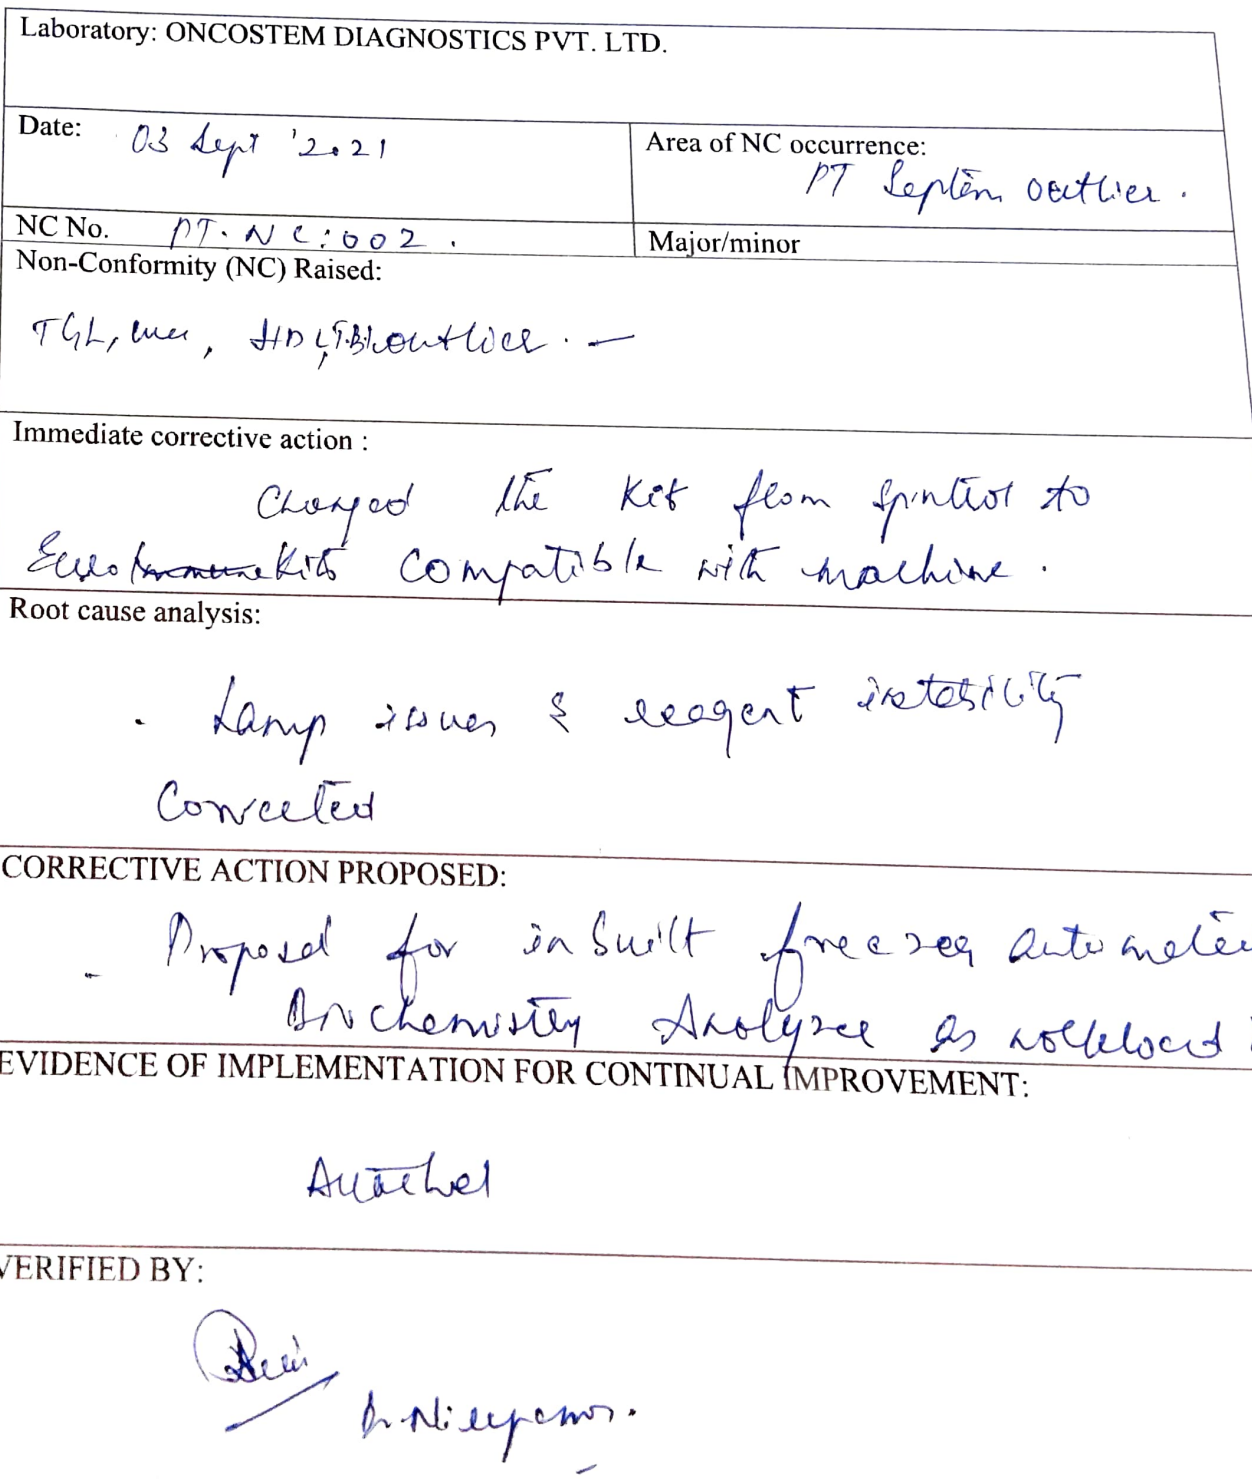 Laboratory: ONCOSTEM DIAGNOSTICS PVT. LTD.
Date: 03 Sept '2021
Area of NC occurrence:
PT Septem outlier.
NC No. PT.NC:002.
Major/minor
Non-Conformity (NC) Raised:
TGL, HDL, T.Bil outlier. —
Immediate corrective action :
Changed the Kit from to
Euro Kits compatible with machine.
Root cause analysis:
. Lamp issues & reagent instability
Corrected
CORRECTIVE ACTION PROPOSED:
- Proposal for inbuilt freezer
Biochemistry Analyzer as workload
EVIDENCE OF IMPLEMENTATION FOR CONTINUAL IMPROVEMENT:
Attached
VERIFIED BY: